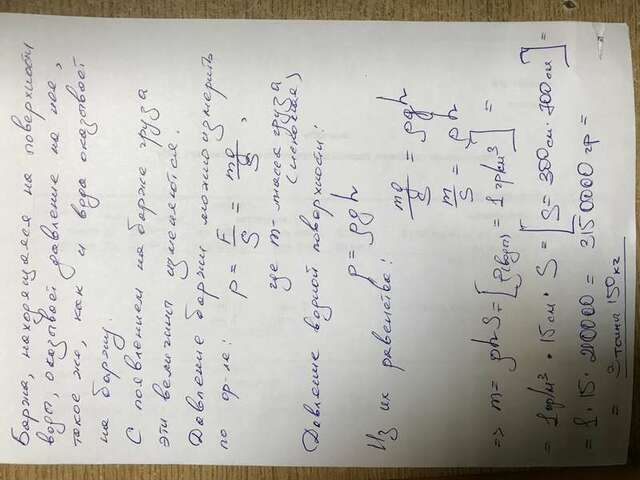 Баржа, находящаяся на поверхности
воды, оказывает давление на нее,
такое же, как и вода оказывает
на баржу.
С появлением на барже груза
эти величины изменяются.
Давление баржи можно измерить
по ф-ле: p = F/S = mg/S,
где m - масса груза
(искомая)
Давление водной поверхности:
p = ρgh
Из их равенства: mg/S = ρgh
m/S = ρh
=> m = ρhS = [ρ(воды) = 1 гр/см³] =
= 1 гр/см³ · 15 см · S = [S = 300 см · 700 см] =
= 1 · 15 · 210000 = 3150000 гр =
= 3 тонны 150 кг